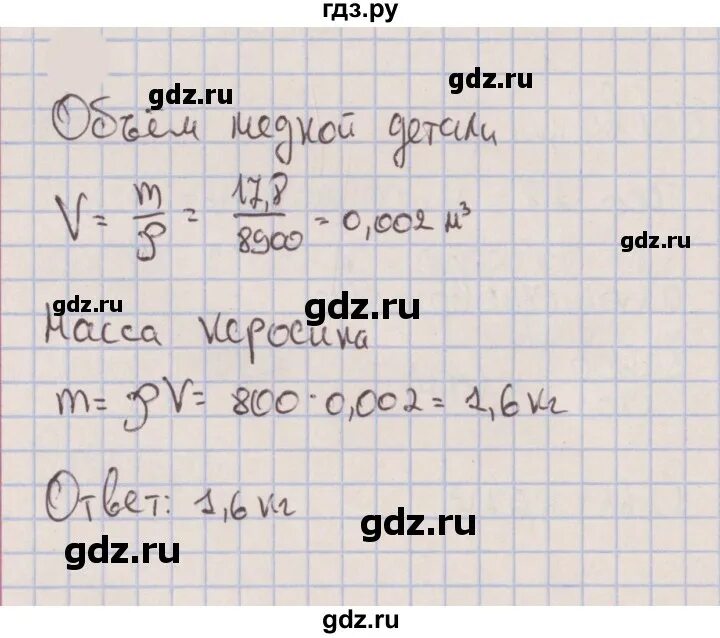 гдз.ру
gdz.ru
gdz.ru
Объём медной детали
V = m/ρ = 17,8/8900 = 0,002 м³
gdz.ru
gdz.ru
gdz.ru
Масса керосина
m = ρV = 800 · 0,002 = 1,6 кг
Ответ: 1,6 кг
gdz.ru
gdz.ru
gdz.ru